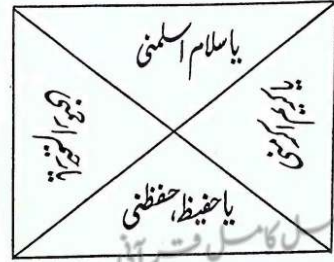 یا سلام اسلمنی
یا کریم اکرمنی
یا حفیظ، حفظنی
کامل قرآنی